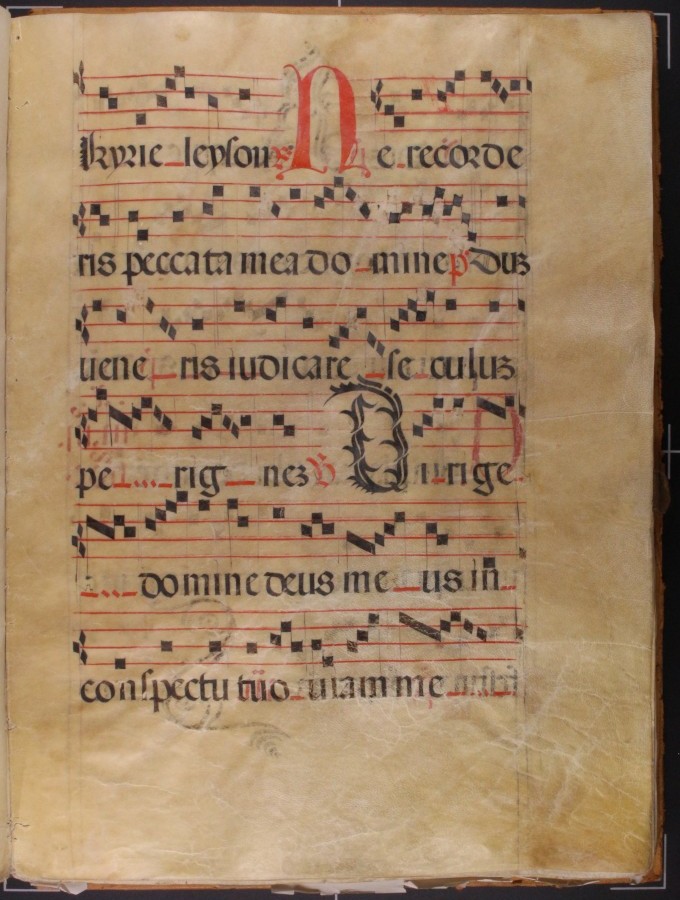 kyrie leyson ℟ Ne recorde
ris peccata mea domine p̄ Duꝫ
uene ris iudicare se culuꝫ
pe rig neꝫ ℣ Dirige
domine deus me us in
conspectu tuo uiam me